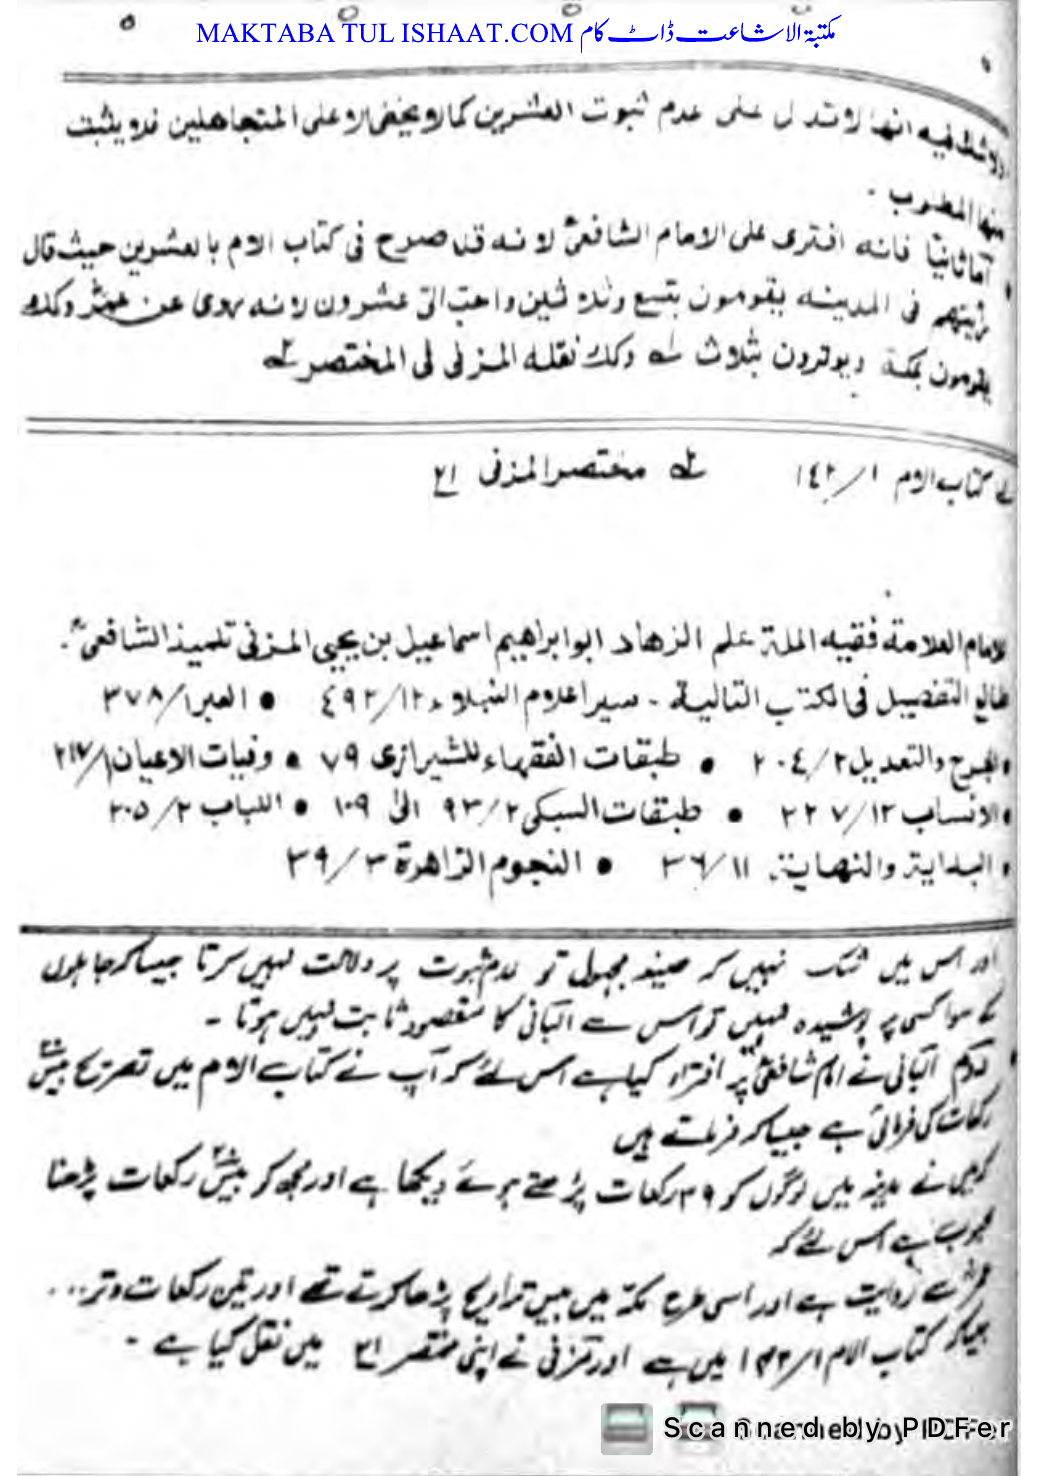 MAKTABA TUL ISHAAT.COM مکتبۃ الاشاعت ڈاٹ کام
ولا شك فيه انها لا تدل على عدم ثبوت العشرين كما لا يخفى الا على المتجاهلين فلا يثبت
منها المطلوب -
اما ثانيًا فانه افترى على الامام الشافعیؒ لانه قد صرح فی كتاب الام بالعشرين حيث قال
رأيتهم فى المدينه يقومون بتسع وثلاثين واحب الیّ عشرون لانه روى عن عمرؓ وكذلك
يقومون بمكة ويوترون بثلاث ـله وكذلك نقله المزنی فی المختصر ـله
ـله كتاب الام ١/١٤٢ ـله مختصر المزنی ٢١
الامام العلامة فقيه الملة علم الزهاد ابو ابراهيم اسماعيل بن يحيى المزنى تلميذ الشافعیؒ.
طالع التفصيل فى الكتب التالية - سير اعلام النبلاء ١٢/٤٩٢ ● العبر ١/٣٧٨
● الجرح والتعديل ٢/٢٠٤ ● طبقات الفقهاء للشيرازى ٧٩ ● وفيات الاعيان ١/٢١٧
● الانساب ١٢/٢٢٧ ● طبقات السبكى ٢/٩٣ الى ١٠٩ ● اللباب ٢/٢٠٥
● البداية والنهاية ١١/٣٦ ● النجوم الزاهرة ٣/٣٩
اور اس میں شک نہیں کہ صیغہ مجہول تو عدم ثبوت پر دلالت نہیں کرتا جیسا کہ جاہلوں
کے سوا کسی پر پوشیدہ نہیں تو اس سے البانی کا مقصود ثابت نہیں ہوتا -
دوم البانی نے امام شافعیؒ پر افتراء کیا ہے اس لئے کہ آپ نے کتاب الام میں تصریح بیس ۲۰
رکعات کی فرمائی ہے جیسا کہ فرماتے ہیں
کہ میں نے مدینہ میں لوگوں کو ۳۹ رکعات پڑھتے ہوئے دیکھا ہے اور مجھ کو بیس ۲۰ رکعات پڑھنا
محبوب ہے اس لئے کہ
عمرؓ سے روایت ہے اور اسی طرح مکہ میں بیس تراویح پڑھا کرتے تھے اور تین رکعات وتر...
جیسا کہ کتاب الام ۱/۱۴۲ میں ہے اور مزنی نے اپنی مختصر ۲۱ میں نقل کیا ہے -
Scanned by PDFer